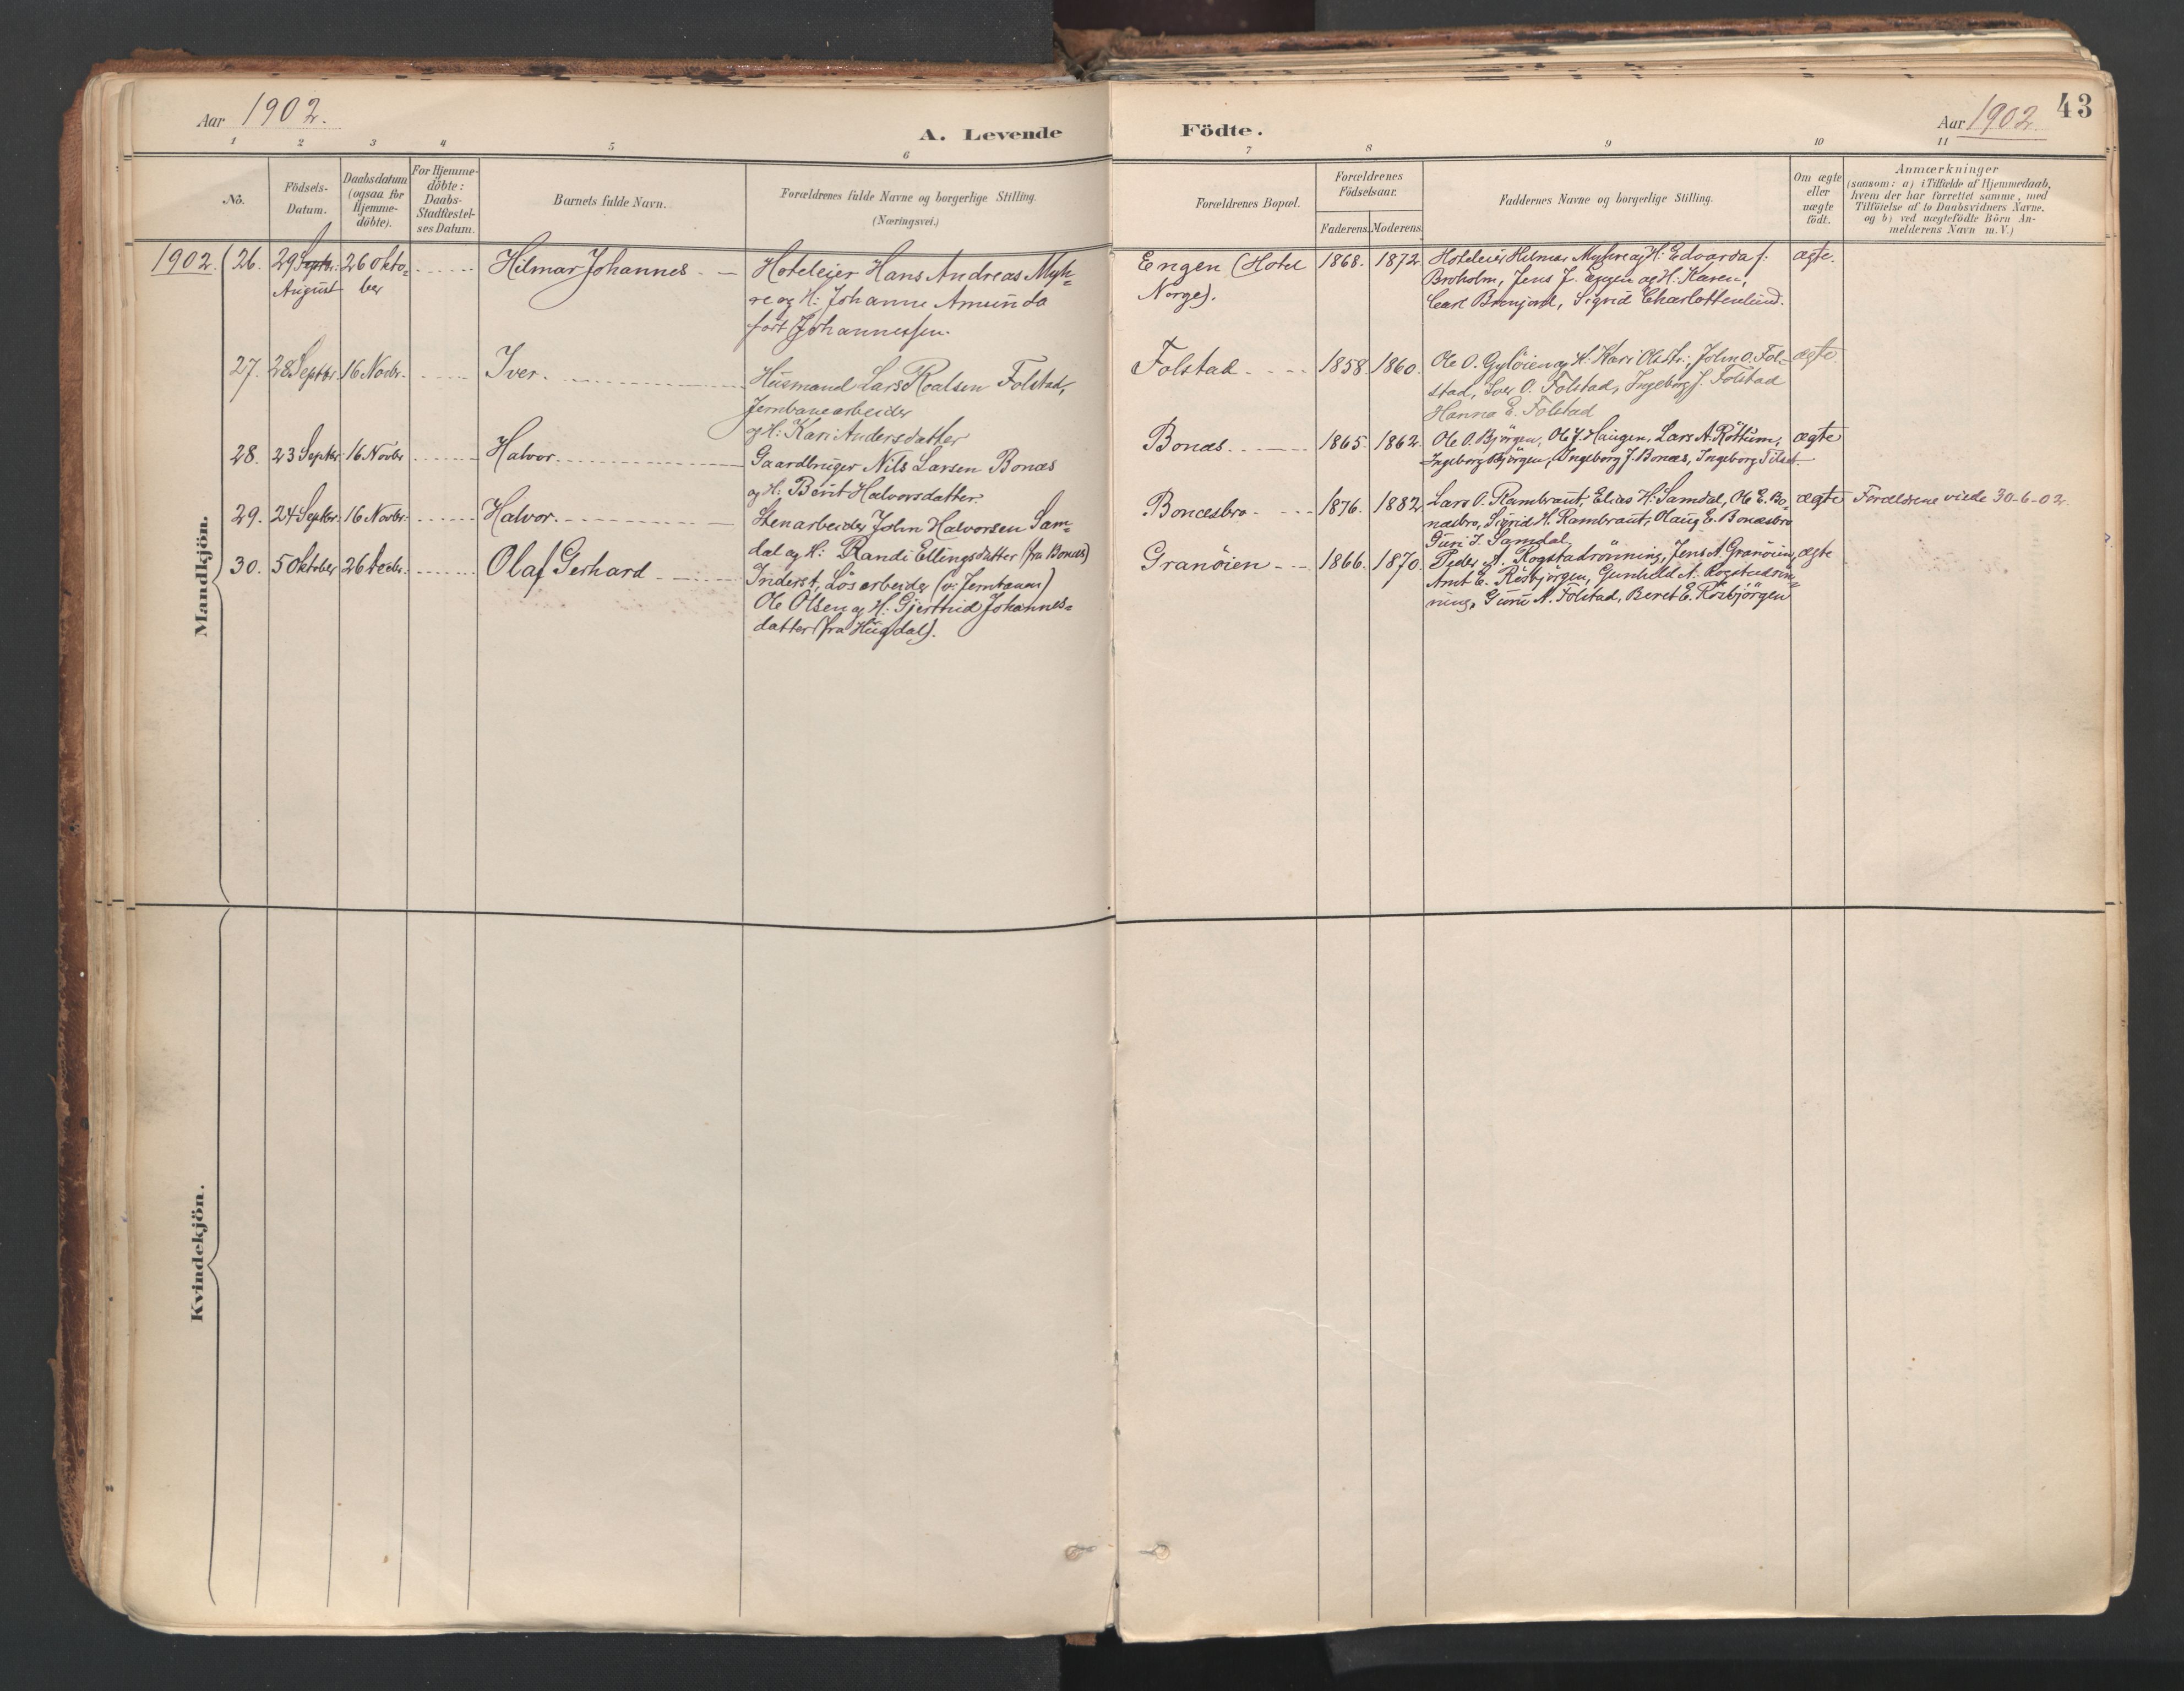 Aar 1902.
A. Levende
Födte.
Aar 1902
43
1 2 3 4 5 6 7 8 9 10 11
No.
Födsels-
Datum.
Daabsdatum
(ogsaa for
Hjemme-
döbte).
For Hjemme-
döbte:
Daabs-
Stadfæstel-
ses Datum.
Barnets fulde Navn.
Forældrenes fulde Navne og borgerlige Stilling.
(Næringsvei.)
Forældrenes Bopæl.
Forældrenes
Födselsaar.
Faderens. Moderens.
Faddernes Navne og borgerlige Stilling.
Om ægte
eller
uægte
födt.
Anmærkninger
(saasom: a) i Tilfælde af Hjemmedaab,
hvem der har forrettet samme, med
Tilföielse af to Daabsvidners Navne.
og b) ved uægtefödte Börn An-
melderens Navn m. V.)
Mandkjön.
1902. 26. 29 Septr. August
26 Okto-
ber
Hilmar Johannes
Hoteleier Hans Andreas Myh-
re og H: Johanne Amunda
født Johannessen.
Engen (Hotel
Norge).
1868. 1872.
Hoteleier Hilmar Myhre og H: Edvarda f.
Broholm, Jens J. Eggen og H: Karen,
Carl , Sigrid Charlottenlund.
ægte.
27. 28 Septbr. 16 Novbr.
Iver.
Husmand Lars Roalsen Folstad,
Jernbanearbeider
og H: Kari Andersdatter
Folstad
1858. 1860.
Ole O. Gylöien og H: Kari Olsdtr., John O. Fol-
stad, Iver O. Folstad, Ingeborg J. Folstad
Hanna E. Folstad
ægte.
28. 23 Septbr 16 Novbr
Halvor.
Gaardbruger Nils Larsen Bonæs
og H: Berit Halvorsdatter.
Bonæs
1865. 1862.
Ole O. Bjørgen, Ole J. Haugen, Lars A. Röttum,
Ingeborg Bjørgen, Ingeborg J. Bonæs, Ingeborg
ægte
29. 24 Septbr. 16 Novbr.
Halvor.
Stenarbeider John Halvorsen Sam-
dal og H: Randi Ellingsdatter (fra Bonæs)
Bonæsbro
1876. 1882
Lars O. Rambraut, Elias H. Samdal, Ole E. Bo-
næsbro, Sigrid H. Rambraut, Olaug E. Bonæsbro
Guri I. Samdal
ægte
Forældrene viede 30-6-02.
30. 5 Oktober 26 Decbr.
Olaf Gerhard
Inderst, Løsarbeider (v. Jernbanen)
Ole Olsen og H: Gjertrud Johannes-
datter (fra Hugdal).
Granöien
1866. 1870.
Peder A. Rogstadrønning, Jens A. Granöien,
Arnt E. Rösbjørgen, Gunhild A. Rogstadrøn-
ning, Guru A. Folstad, Beret E. Rösbjørgen
ægte
Kvindekjön.